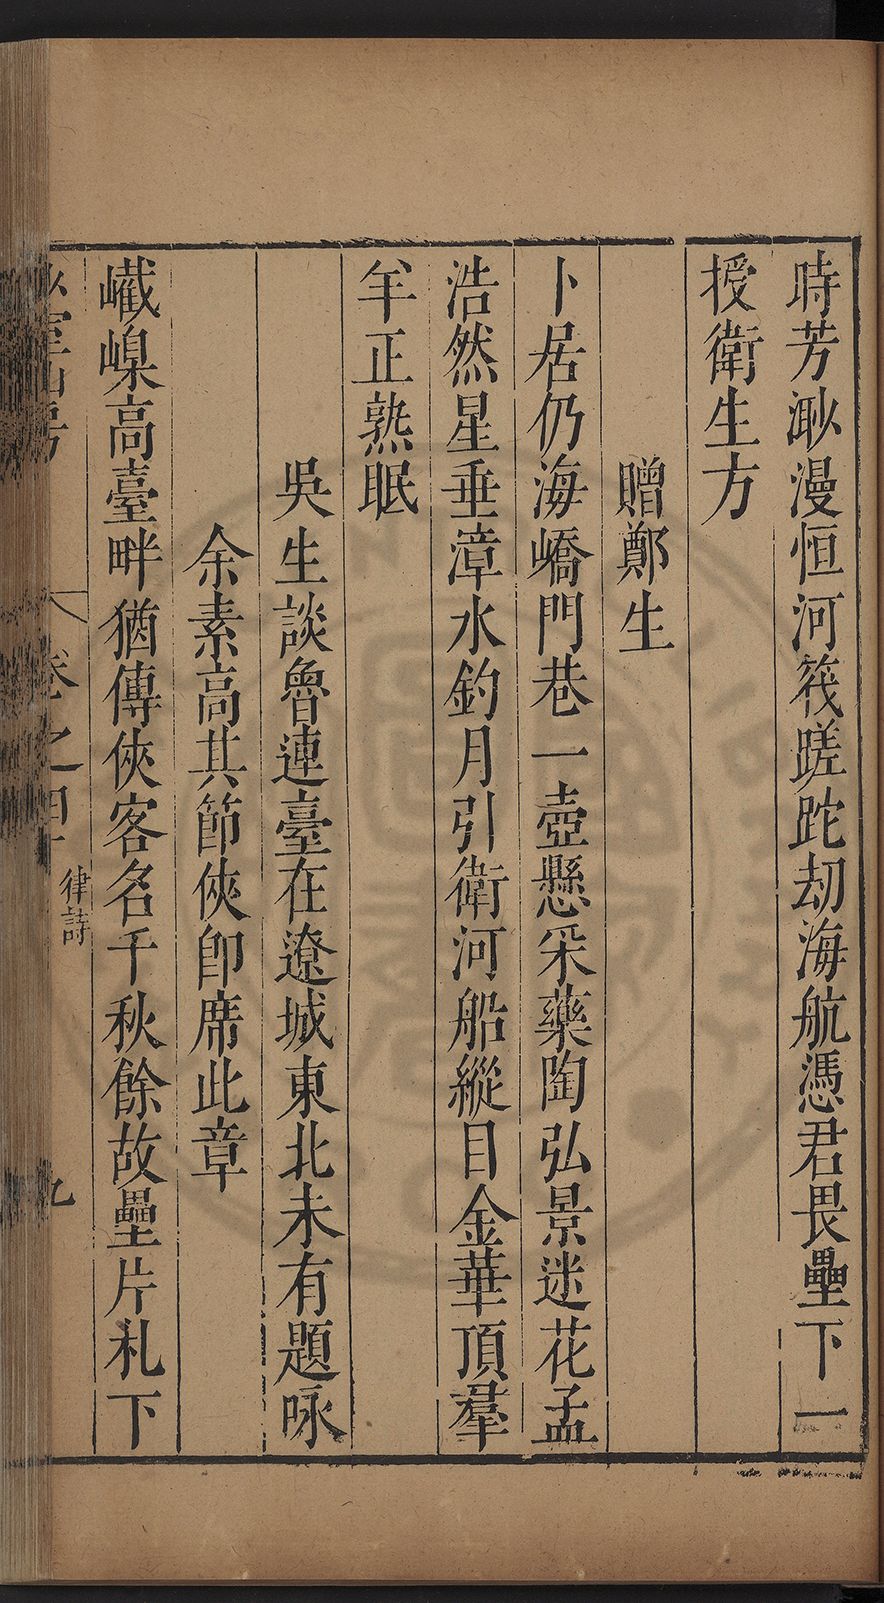 時芳渺漫恒河筏蹉跎劫海航憑君畏壘下一
授衛生方
贈鄭生
卜居仍海嶠門巷一壺懸采藥陶弘景迷花孟
浩然星垂漳水釣月引衛河船縱目金華頂羣
羊正熟眠
吳生談魯連臺在遼城東北未有題咏
余素高其節俠卽席此章
巀嵲高臺畔猶傳俠客名千秋餘故壘片札下
卷之四十
律詩
九